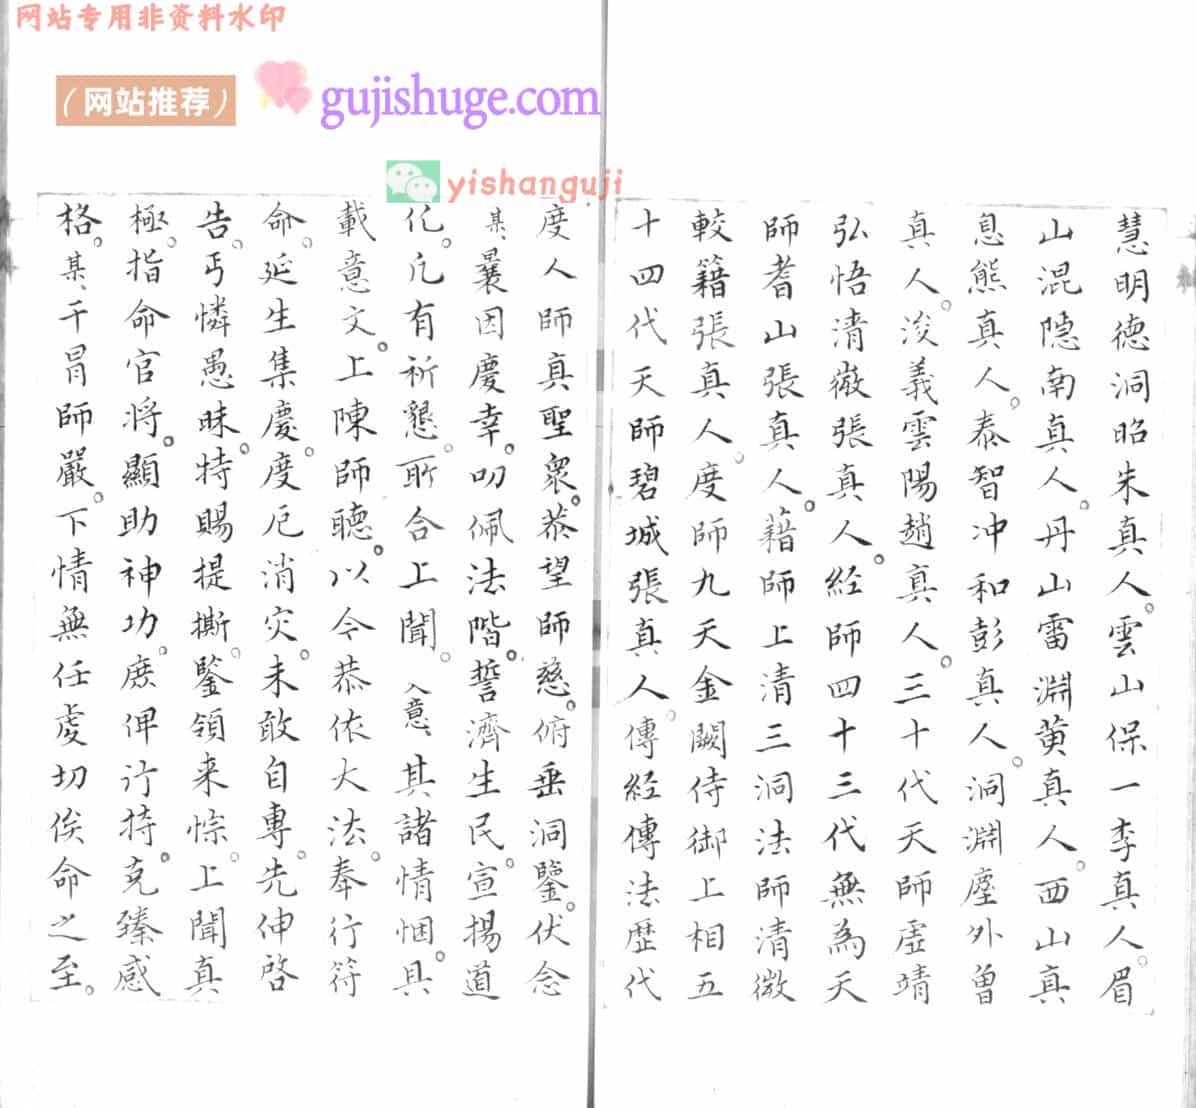 网站专用非资料水印
（网站推荐）
gujishuge.com
yishanguji
慧明德洞昭朱真人。雲山保一李真人。眉
山混隠南真人。丹山雷淵黄真人。西山真
息熊真人。泰智冲和彭真人。洞淵塵外曽
真人。浚義雲陽趙真人。三十代天師虚靖
弘悟清微張真人。經師四十三代無為天
師耆山張真人。藉師上清三洞法師清微
較籍張真人。度師九天金闕侍御上相五
十四代天師碧城張真人。傳經傳法歴代
度人師真聖衆。恭望師慈。俯垂洞鑒。伏念
某、曩因慶幸。叨佩法階。誓濟生民。宣揚道
化。凢有祈懇。所合上聞。入意、其諸情悃。具
載意文。上陳師聴。以今恭依大法。奉行符
命。延生集慶。度厄消灾。未敢自專。先伸啓
告。丐憐愚昧。特賜提撕。鑒領来悰。上聞真
極。指命官将。顯助神功。庶俾讣持。克臻感
格。某、干冐師嚴。下情無任虔切俟命之至。